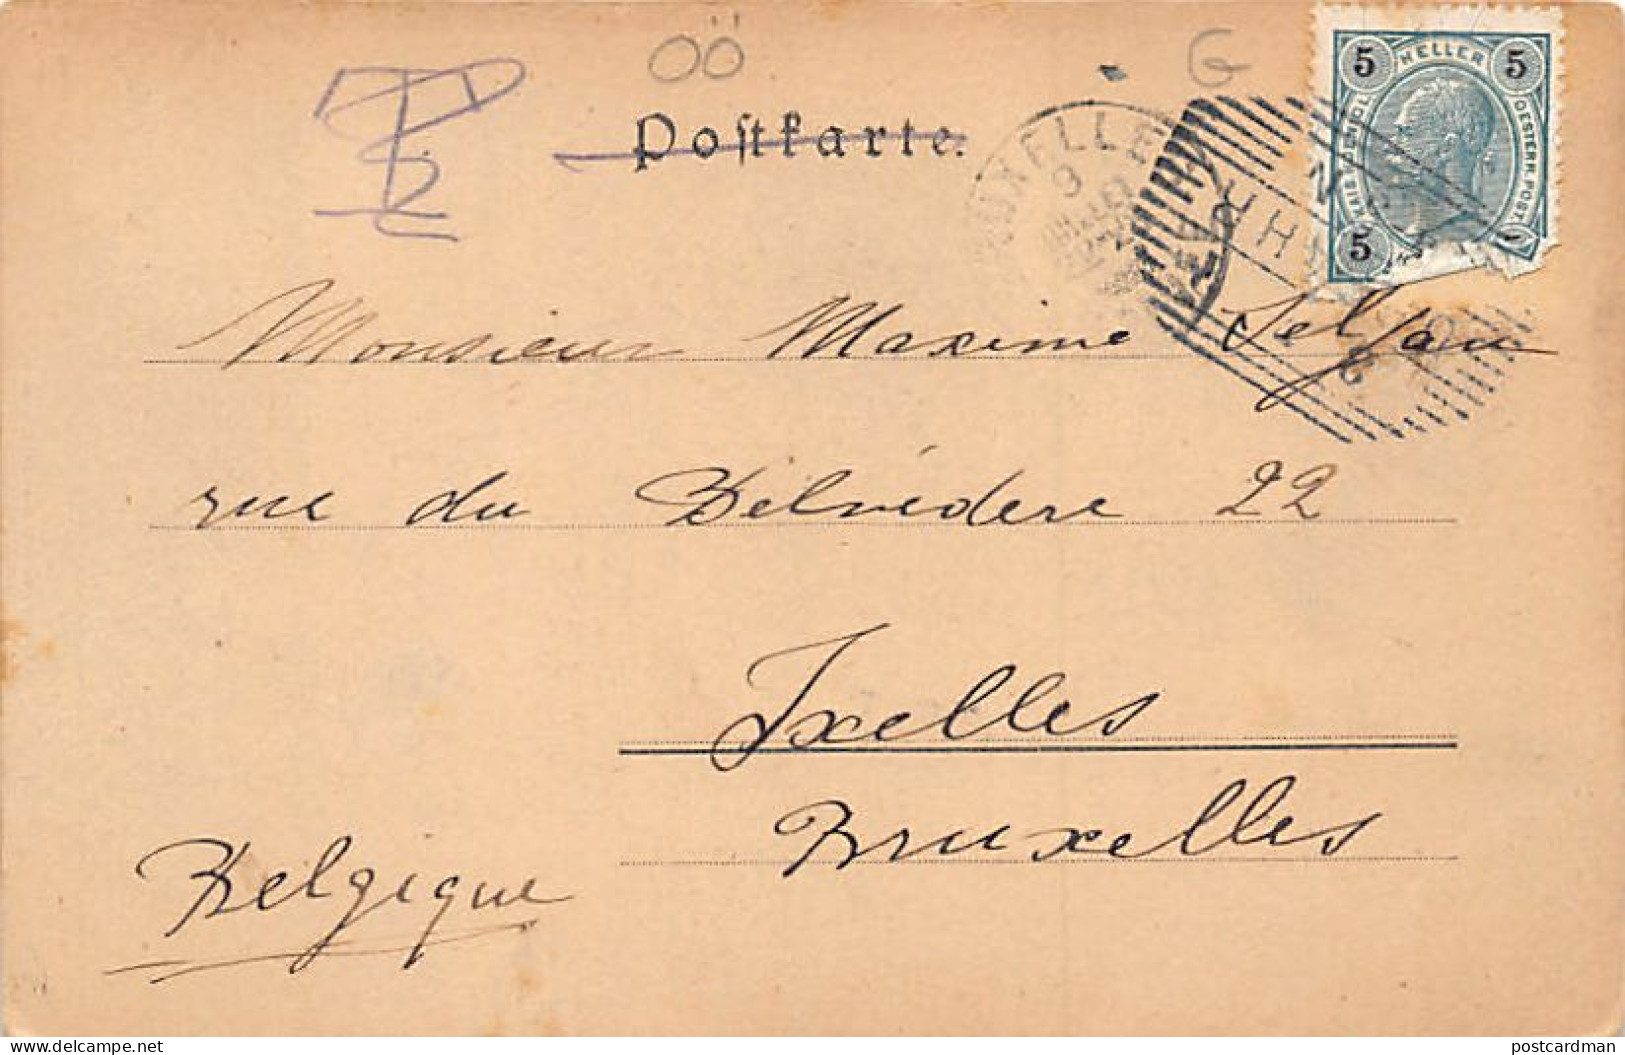 OÖ
G
Postkarte.
5 HELLER 5
KAIS. KÖNIGL. OESTERR. POST.
5
Monsieur Maxime
rue du Belvédère 22
Ixelles
Bruxelles
Belgique
www.delcampe.net
postcardman